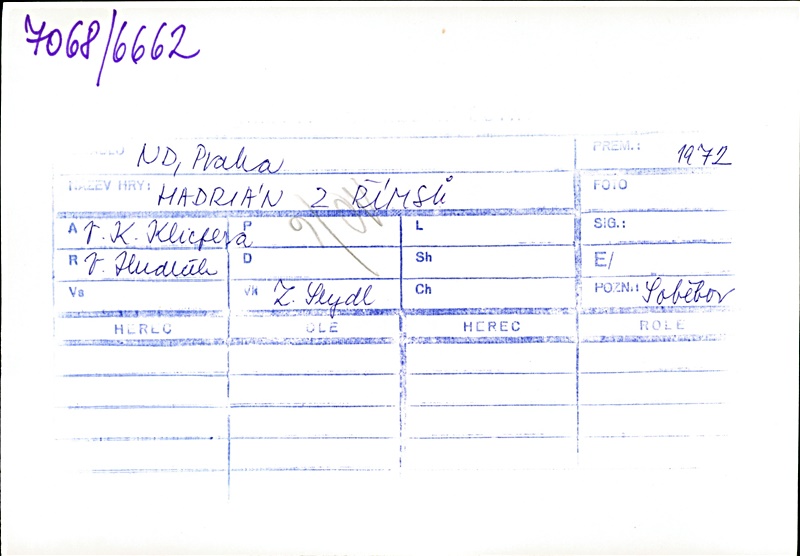 7068/6662
ND, Praha PREM.: 1972
NÁZEV HRY: HADRIÁN Z ŘÍMSŮ FOTO
A V. K. Klicpera P L SIG.:
R V. Hudeček D Sh E/
Vs Vk Z. Seydl Ch POZN.: Soběbor
HEREC OLE HEREC ROLE